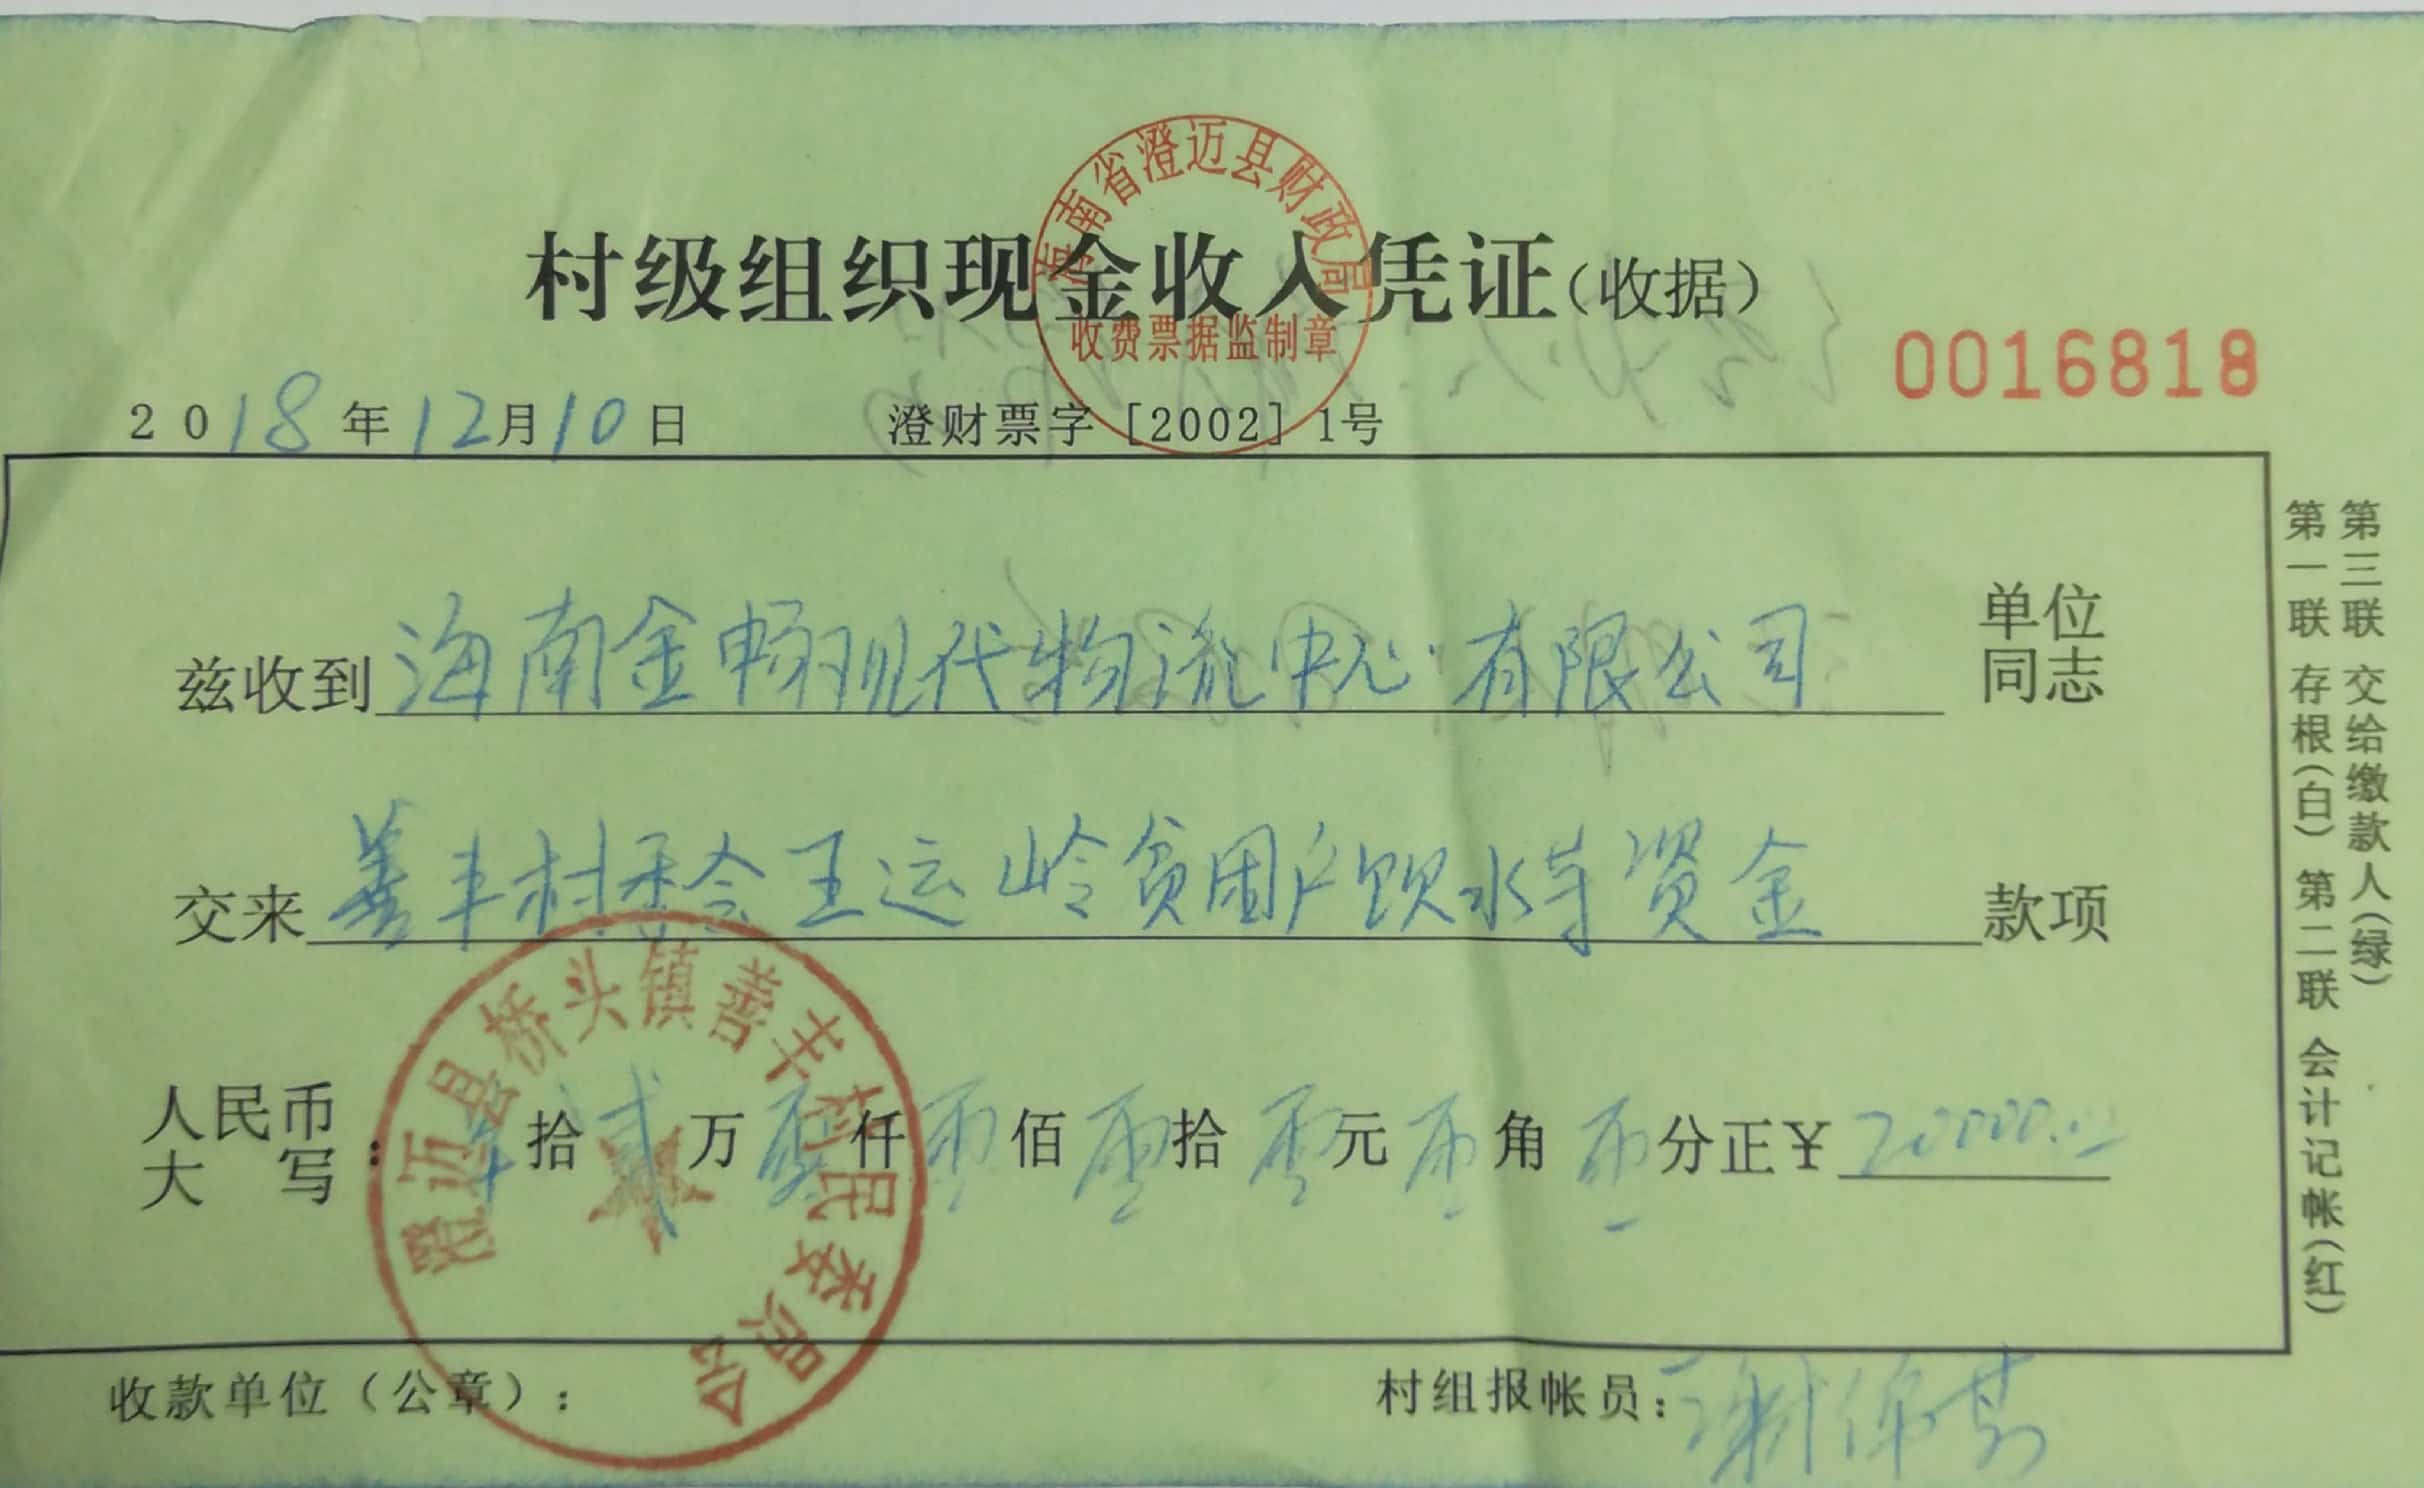 海南省澄迈县财政局
收费票据监制章
村级组织现金收入凭证(收据)
0016818
2018年12月10日 澄财票字[2002]1号
兹收到海南金畅现代物流中心有限公司 单位同志
交来善丰村委会王运岭贫困户饮水等资金 款项
人民币大写: 拾贰万零仟零佰零拾零元零角零分正¥20000.00
澄迈县桥头镇善丰村民委员会
收款单位(公章):
村组报帐员:谢
第一联 存根(白) 第二联 会计记帐(红)
第三联 交给缴款人(绿)